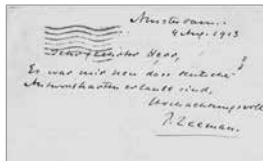 Amsterdam.
4 Aug. 1913
Sehr geehrter Herr,
Es war mir neu dass deutsche
Antwortkarten erlaubt sind.
Hochachtungsvoll
P. Zeeman.